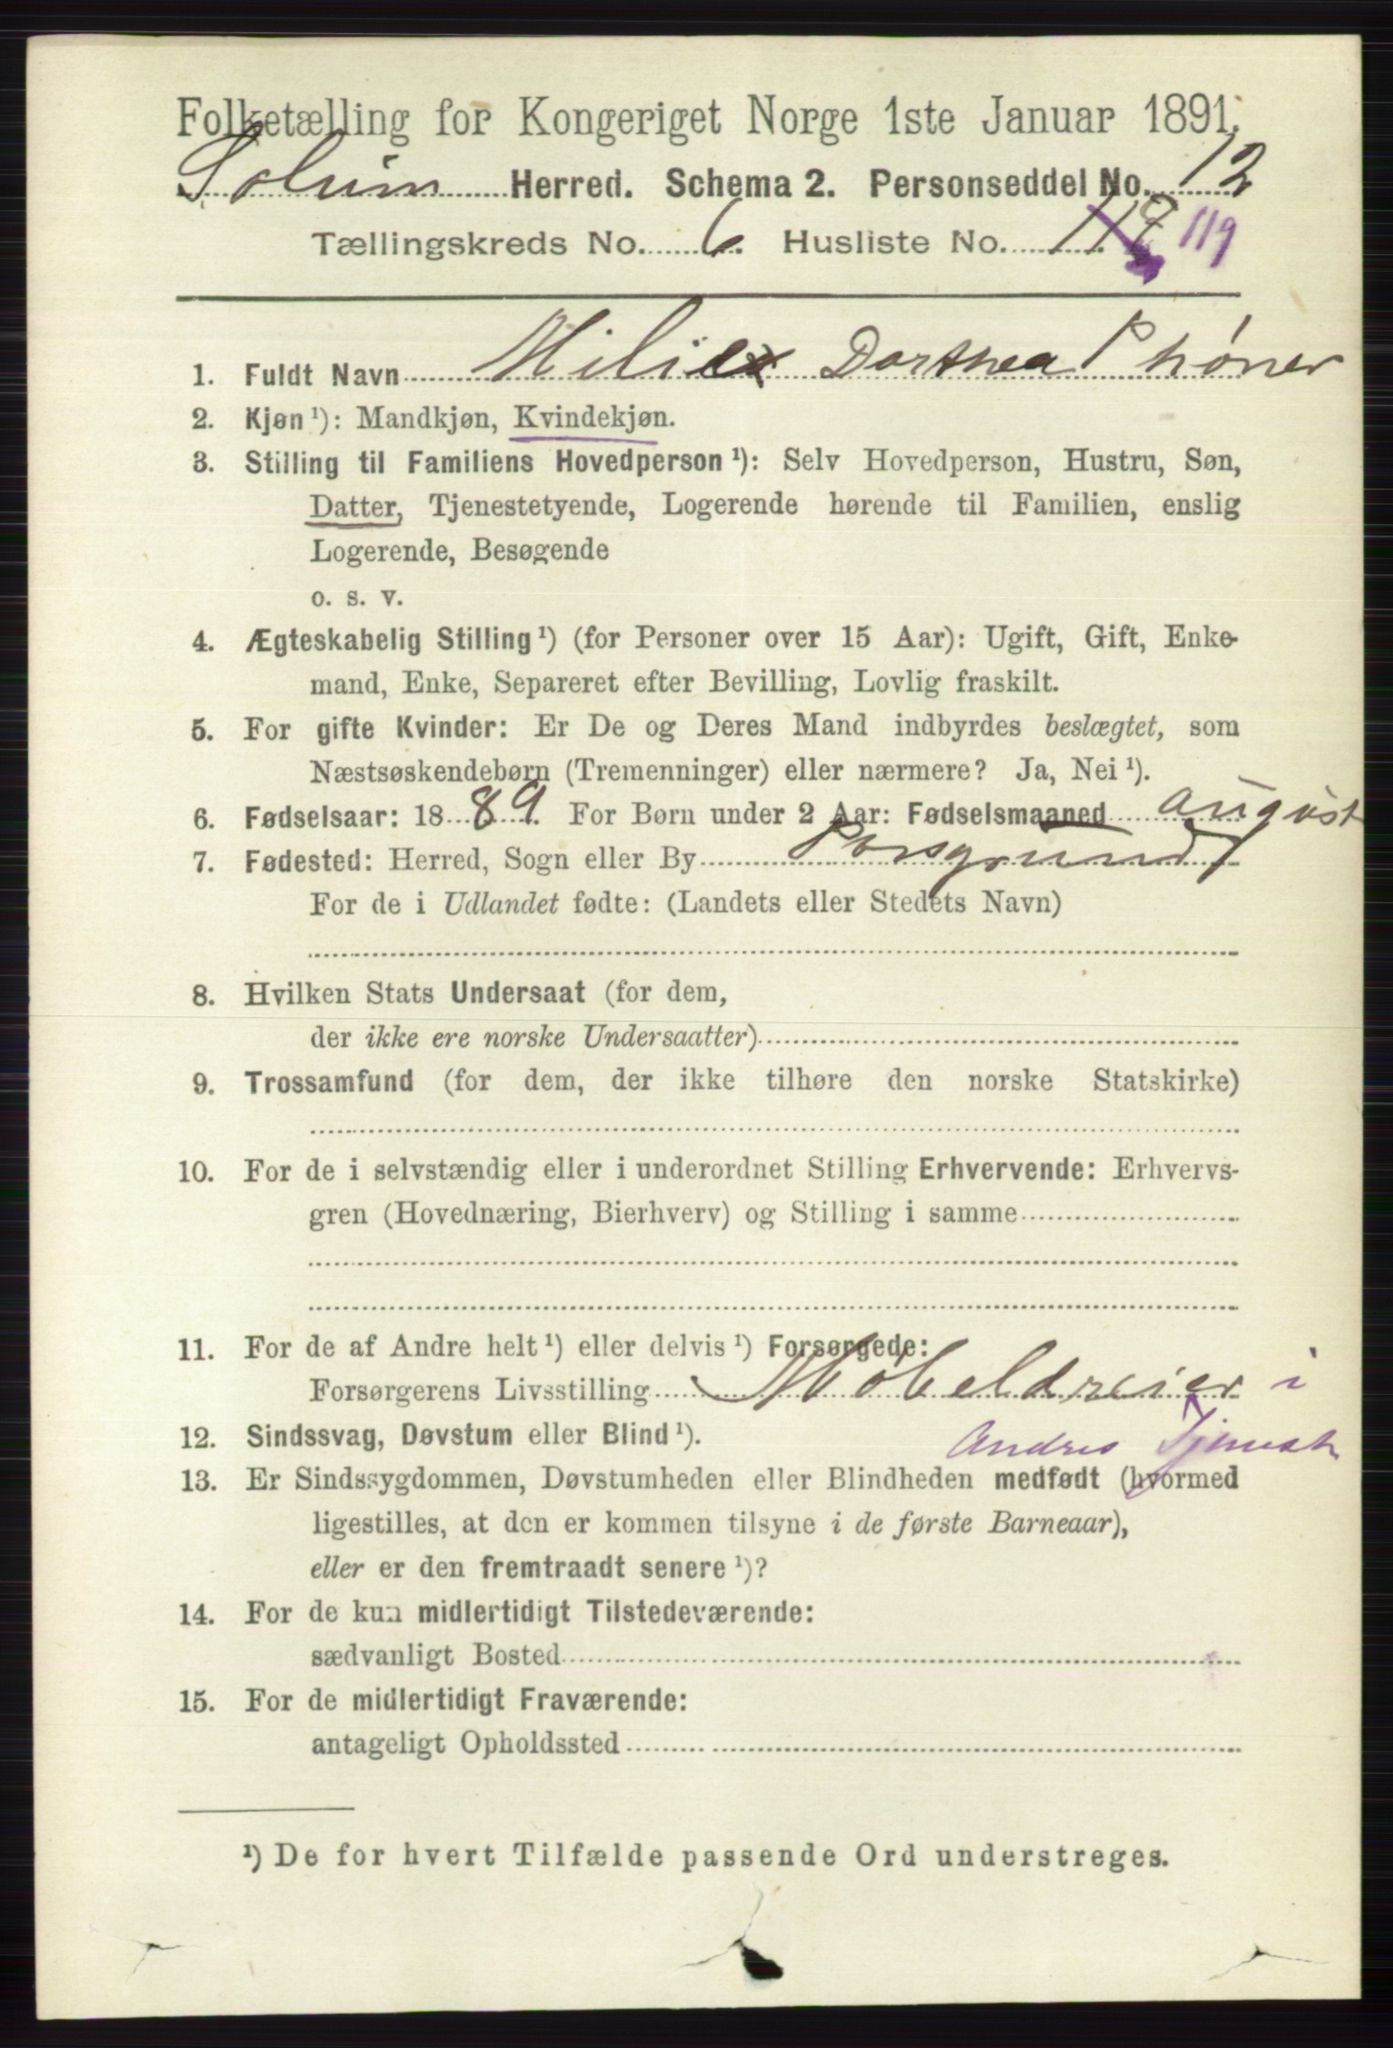 Folketælling for Kongeriget Norge 1ste Januar 1891.
Solum Herred. Schema 2. Personseddel No. 12
Tællingskreds No. 6. Husliste No. 119
1. Fuldt Navn Dorthea
2. Kjøn ¹): Mandkjøn, Kvindekjøn.
3. Stilling til Familiens Hovedperson ¹): Selv Hovedperson, Hustru, Søn,
Datter, Tjenestetyende, Logerende hørende til Familien, enslig
Logerende, Besøgende
o. s. v.
4. Ægteskabelig Stilling ¹) (for Personer over 15 Aar): Ugift, Gift, Enke-
mand, Enke, Separeret efter Bevilling, Lovlig fraskilt.
5. For gifte Kvinder: Er De og Deres Mand indbyrdes beslægtet, som
Næstsøskendebørn (Tremenninger) eller nærmere? Ja, Nei ¹).
6. Fødselsaar: 1889. For Børn under 2 Aar: Fødselsmaaned august
7. Fødested: Herred, Sogn eller By Porsgrund
For de i Udlandet fødte: (Landets eller Stedets Navn)
8. Hvilken Stats Undersaat (for dem,
der ikke ere norske Undersaatter)
9. Trossamfund (for dem, der ikke tilhøre den norske Statskirke)
10. For de i selvstændig eller i underordnet Stilling Erhvervende: Erhvervs-
gren (Hovednæring, Bierhverv) og Stilling i samme
11. For de af Andre helt ¹) eller delvis ¹) Forsørgede:
Forsørgerens Livsstilling Møbeldreier i
Andres Tjenest
12. Sindssvag, Døvstum eller Blind ¹).
13. Er Sindssygdommen, Døvstumheden eller Blindheden medfødt (hvormed
ligestilles, at den er kommen tilsyne i de første Barneaar),
eller er den fremtraadt senere ¹)?
14. For de kun midlertidigt Tilstedeværende:
sædvanligt Bosted
15. For de midlertidigt Fraværende:
antageligt Opholdssted
¹) De for hvert Tilfælde passende Ord understreges.